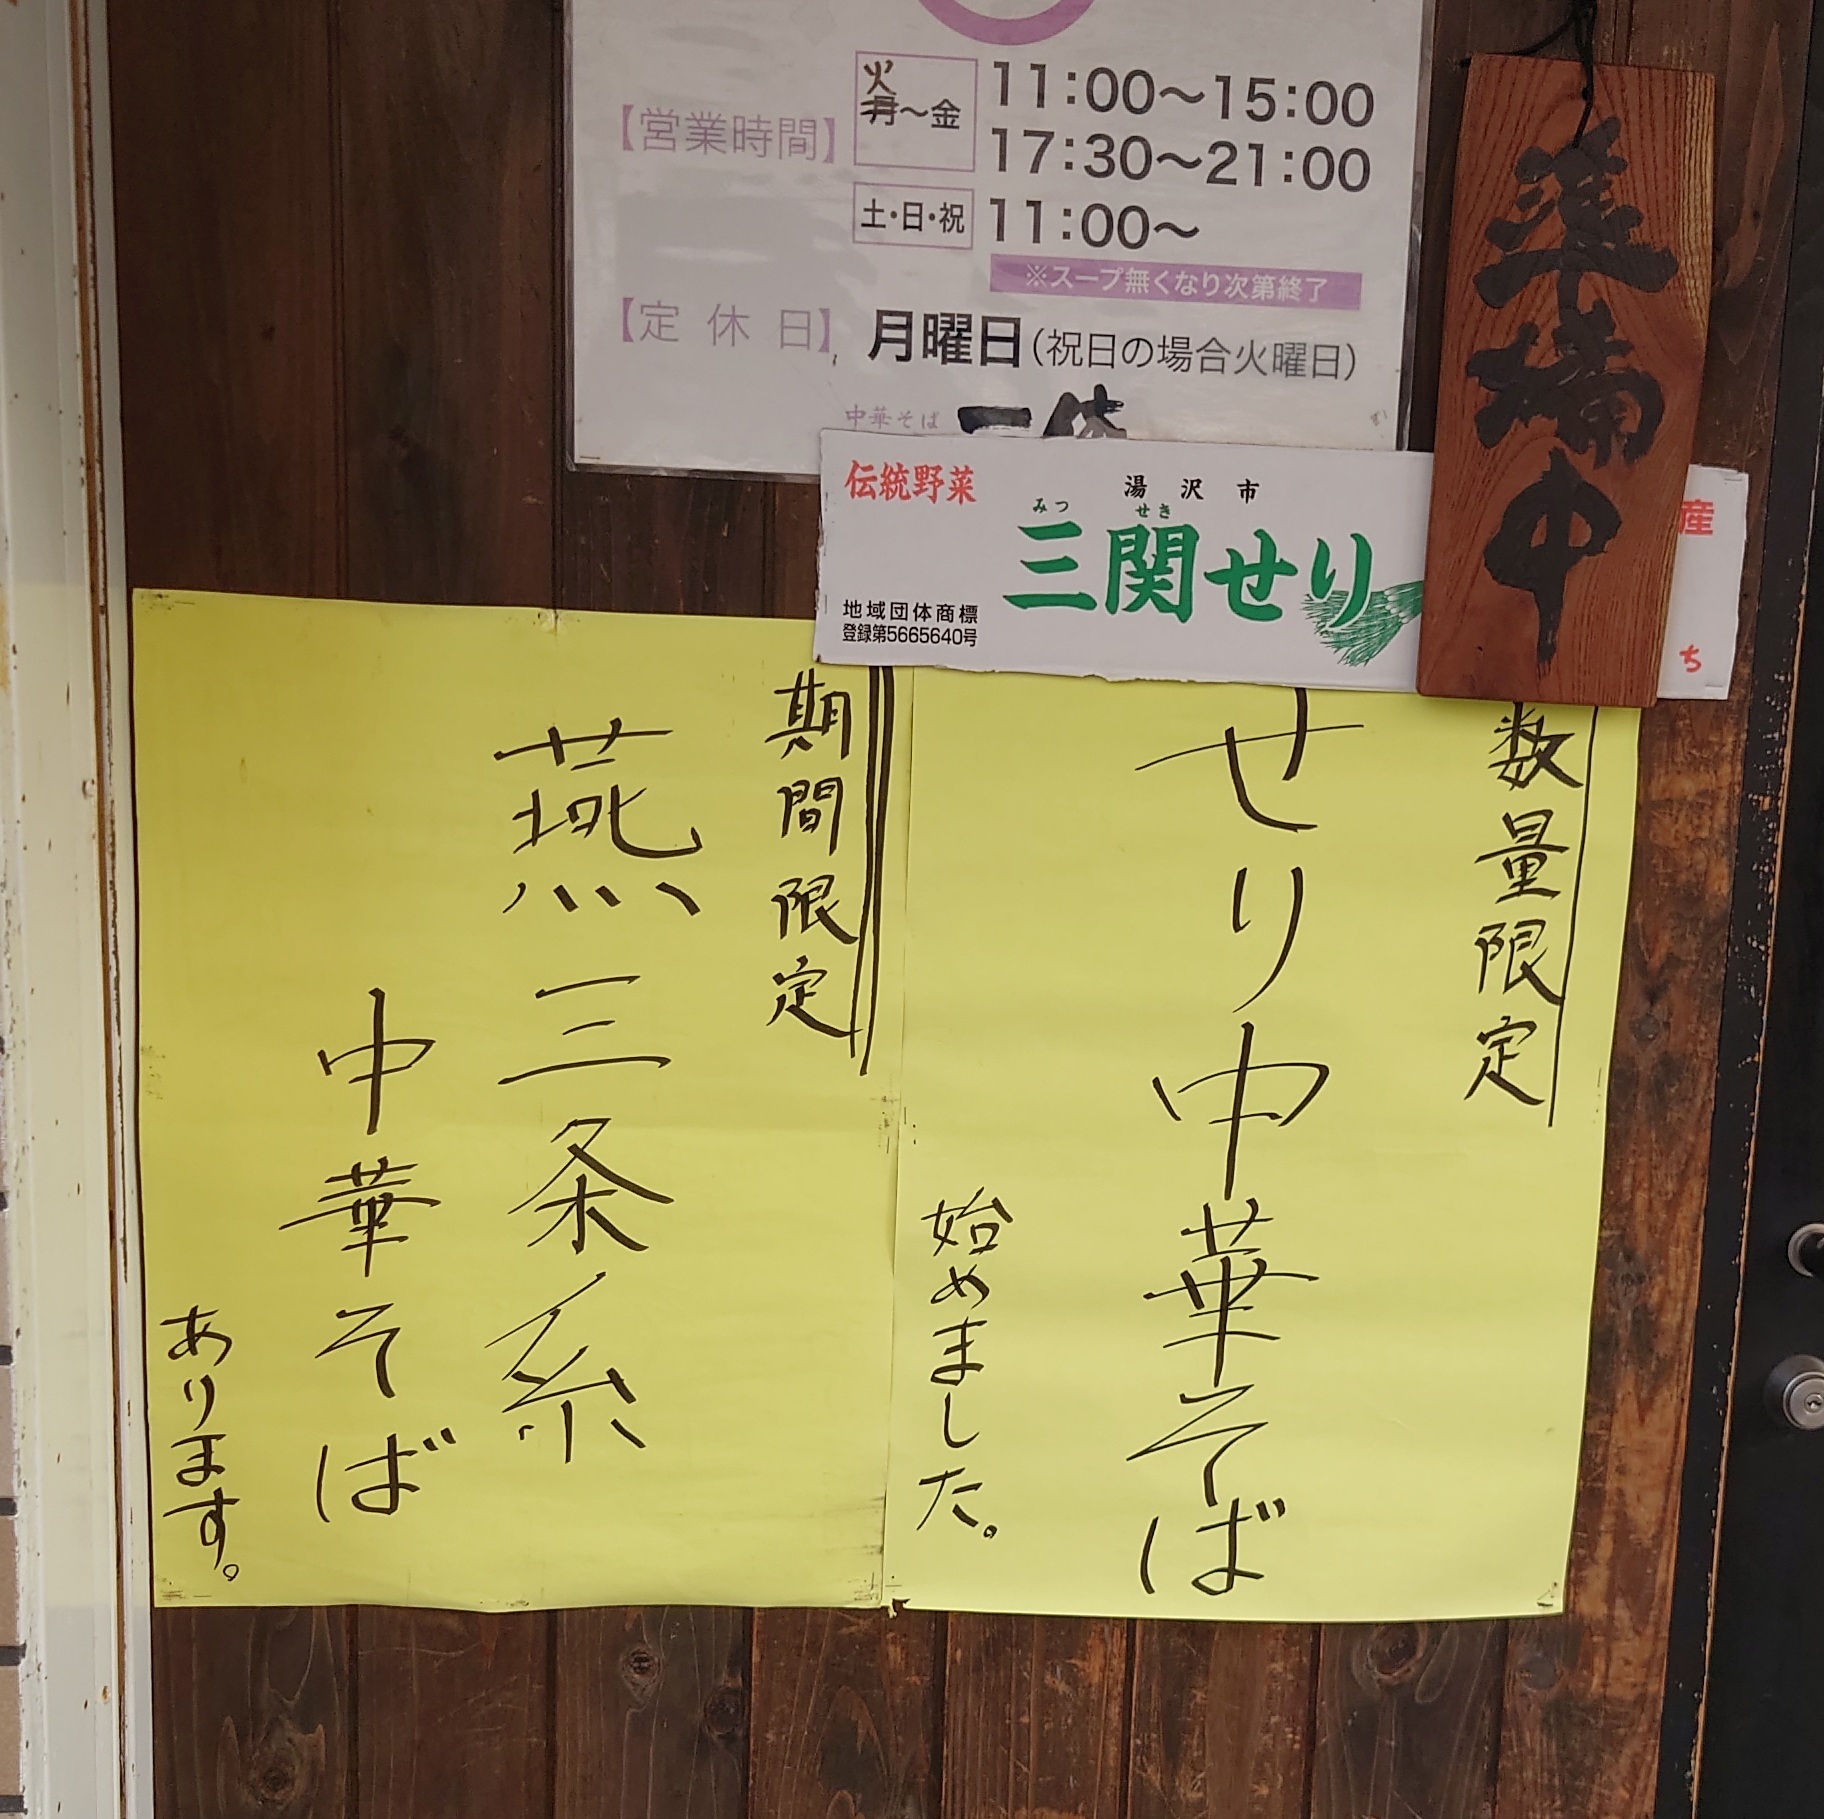 【営業時間】
火
月～金
11:00～15:00
17:30～21:00
土・日・祝
11:00～
※スープ無くなり次第終了
【定休日】
月曜日(祝日の場合火曜日)
中華そば
準備中
伝統野菜
湯沢市
みつ せき
三関せり
地域団体商標
登録第5665640号
産
ち
数量限定
せり中華そば
始めました。
期間限定
燕三条系
中華そば
あります。